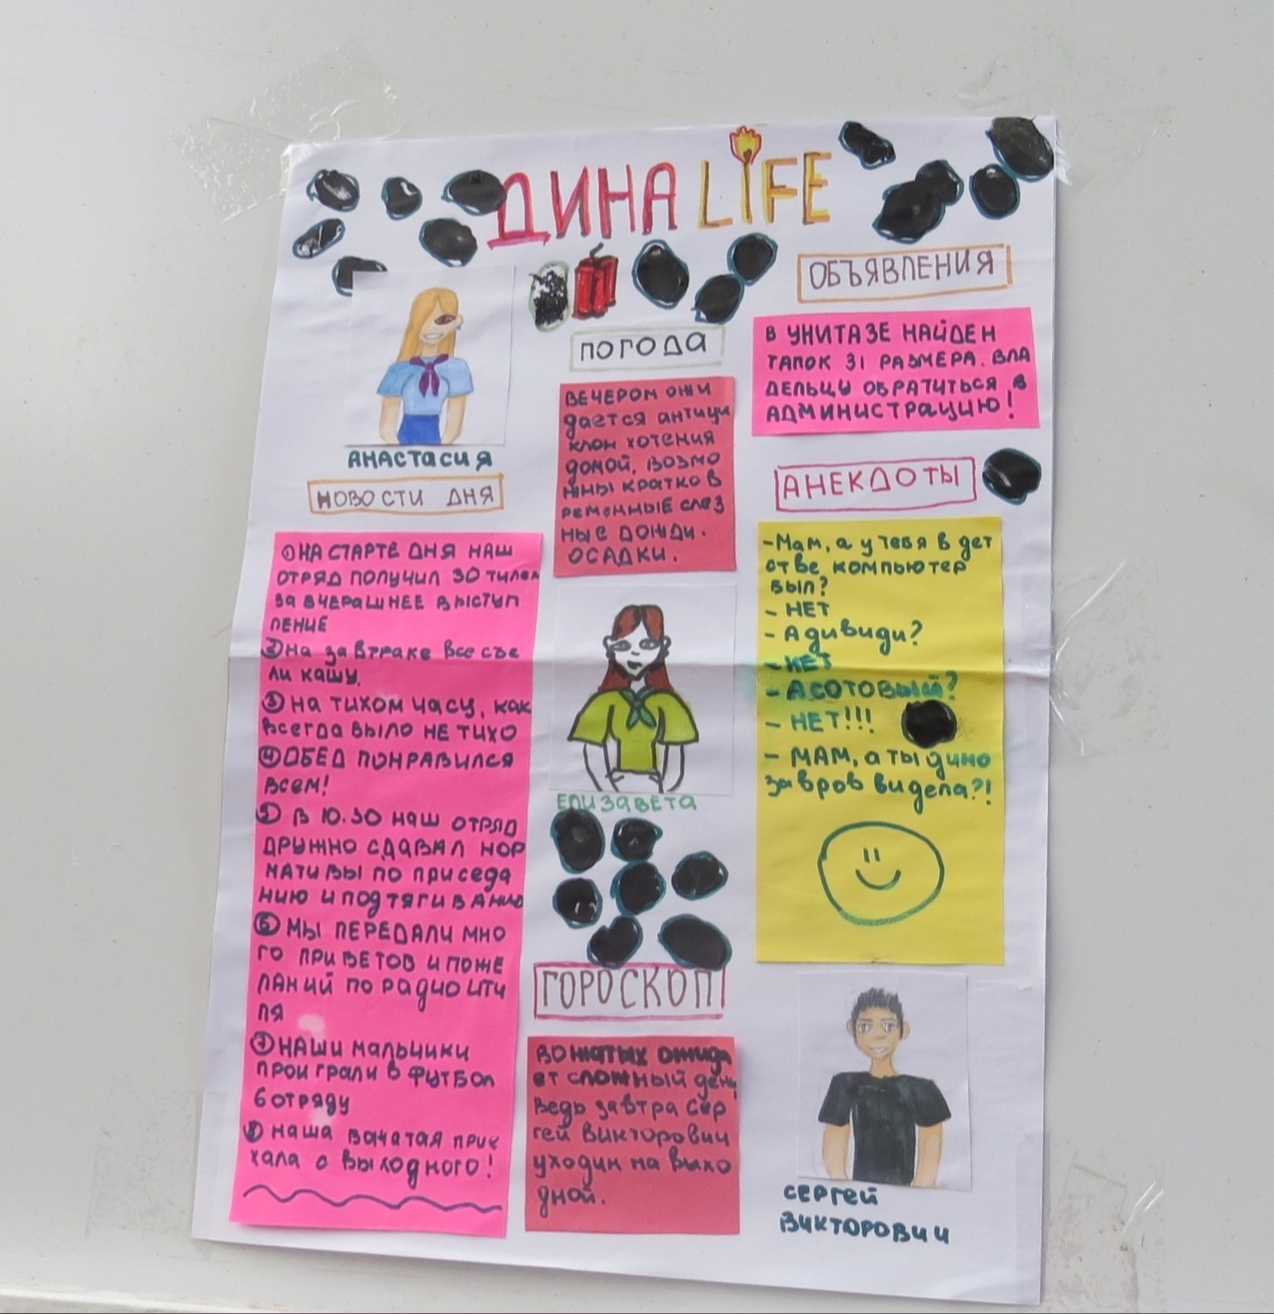 ДИНА LIFE
АНАСТАСИЯ
НОВОСТИ ДНЯ
① НА СТАРТЕ ДНЯ НАШ
ОТРЯД ПОЛУЧИЛ 30 ТИЛЕЙ
ЗА ВЧЕРАШНЕЕ ВЫСТУП
ЛЕНИЕ
② На завтраке все съе
ли кашу.
③ На тихом часу, как
всегда было не тихо
④ ОБЕД ПОНРАВИЛСЯ
всем!
⑤ В 10.30 наш отряд
дружно сдавал нор
мативы по приседа
нию и подтягиванию
⑥ Мы ПЕРЕДАЛИ МНО
ГО ПРИВЕТОВ И ПОЖЕ
ЛАНИЙ ПО РАДИО ИТИ
ЛЯ
⑦ НАШИ мальчики
проиграли в футбол
6 отряду
⑧ наша вожатая прие
хала с выходного!
ПОГОДА
ВЕЧЕРОМ ОЖИ
дается антици
клон хотения
домой, возмо
жны кратков
ременные слез
ные дожди.
ОСАДКИ.
ЕЛИЗАВЕТА
ГОРОСКОП
Вожатых ожида
ет сложный день,
ведь завтра Сер
гей Викторович
уходит на выхо
дной.
ОБЪЯВЛЕНИЯ
В УНИТАЗЕ НАЙДЕН
ТАПОК 31 РАЗМЕРА. ВЛА
ДЕЛЬЦУ ОБРАТИТЬСЯ В
АДМИНИСТРАЦИЮ!
АНЕКДОТЫ
- Мам, а у тебя в дет
стве компьютер
был?
- НЕТ
- А дивиди?
- НЕТ
- А СОТОВЫЙ?
- НЕТ!!!
- МАМ, а ты дино
завров видела?!
СЕРГЕЙ
ВИКТОРОВИЧ